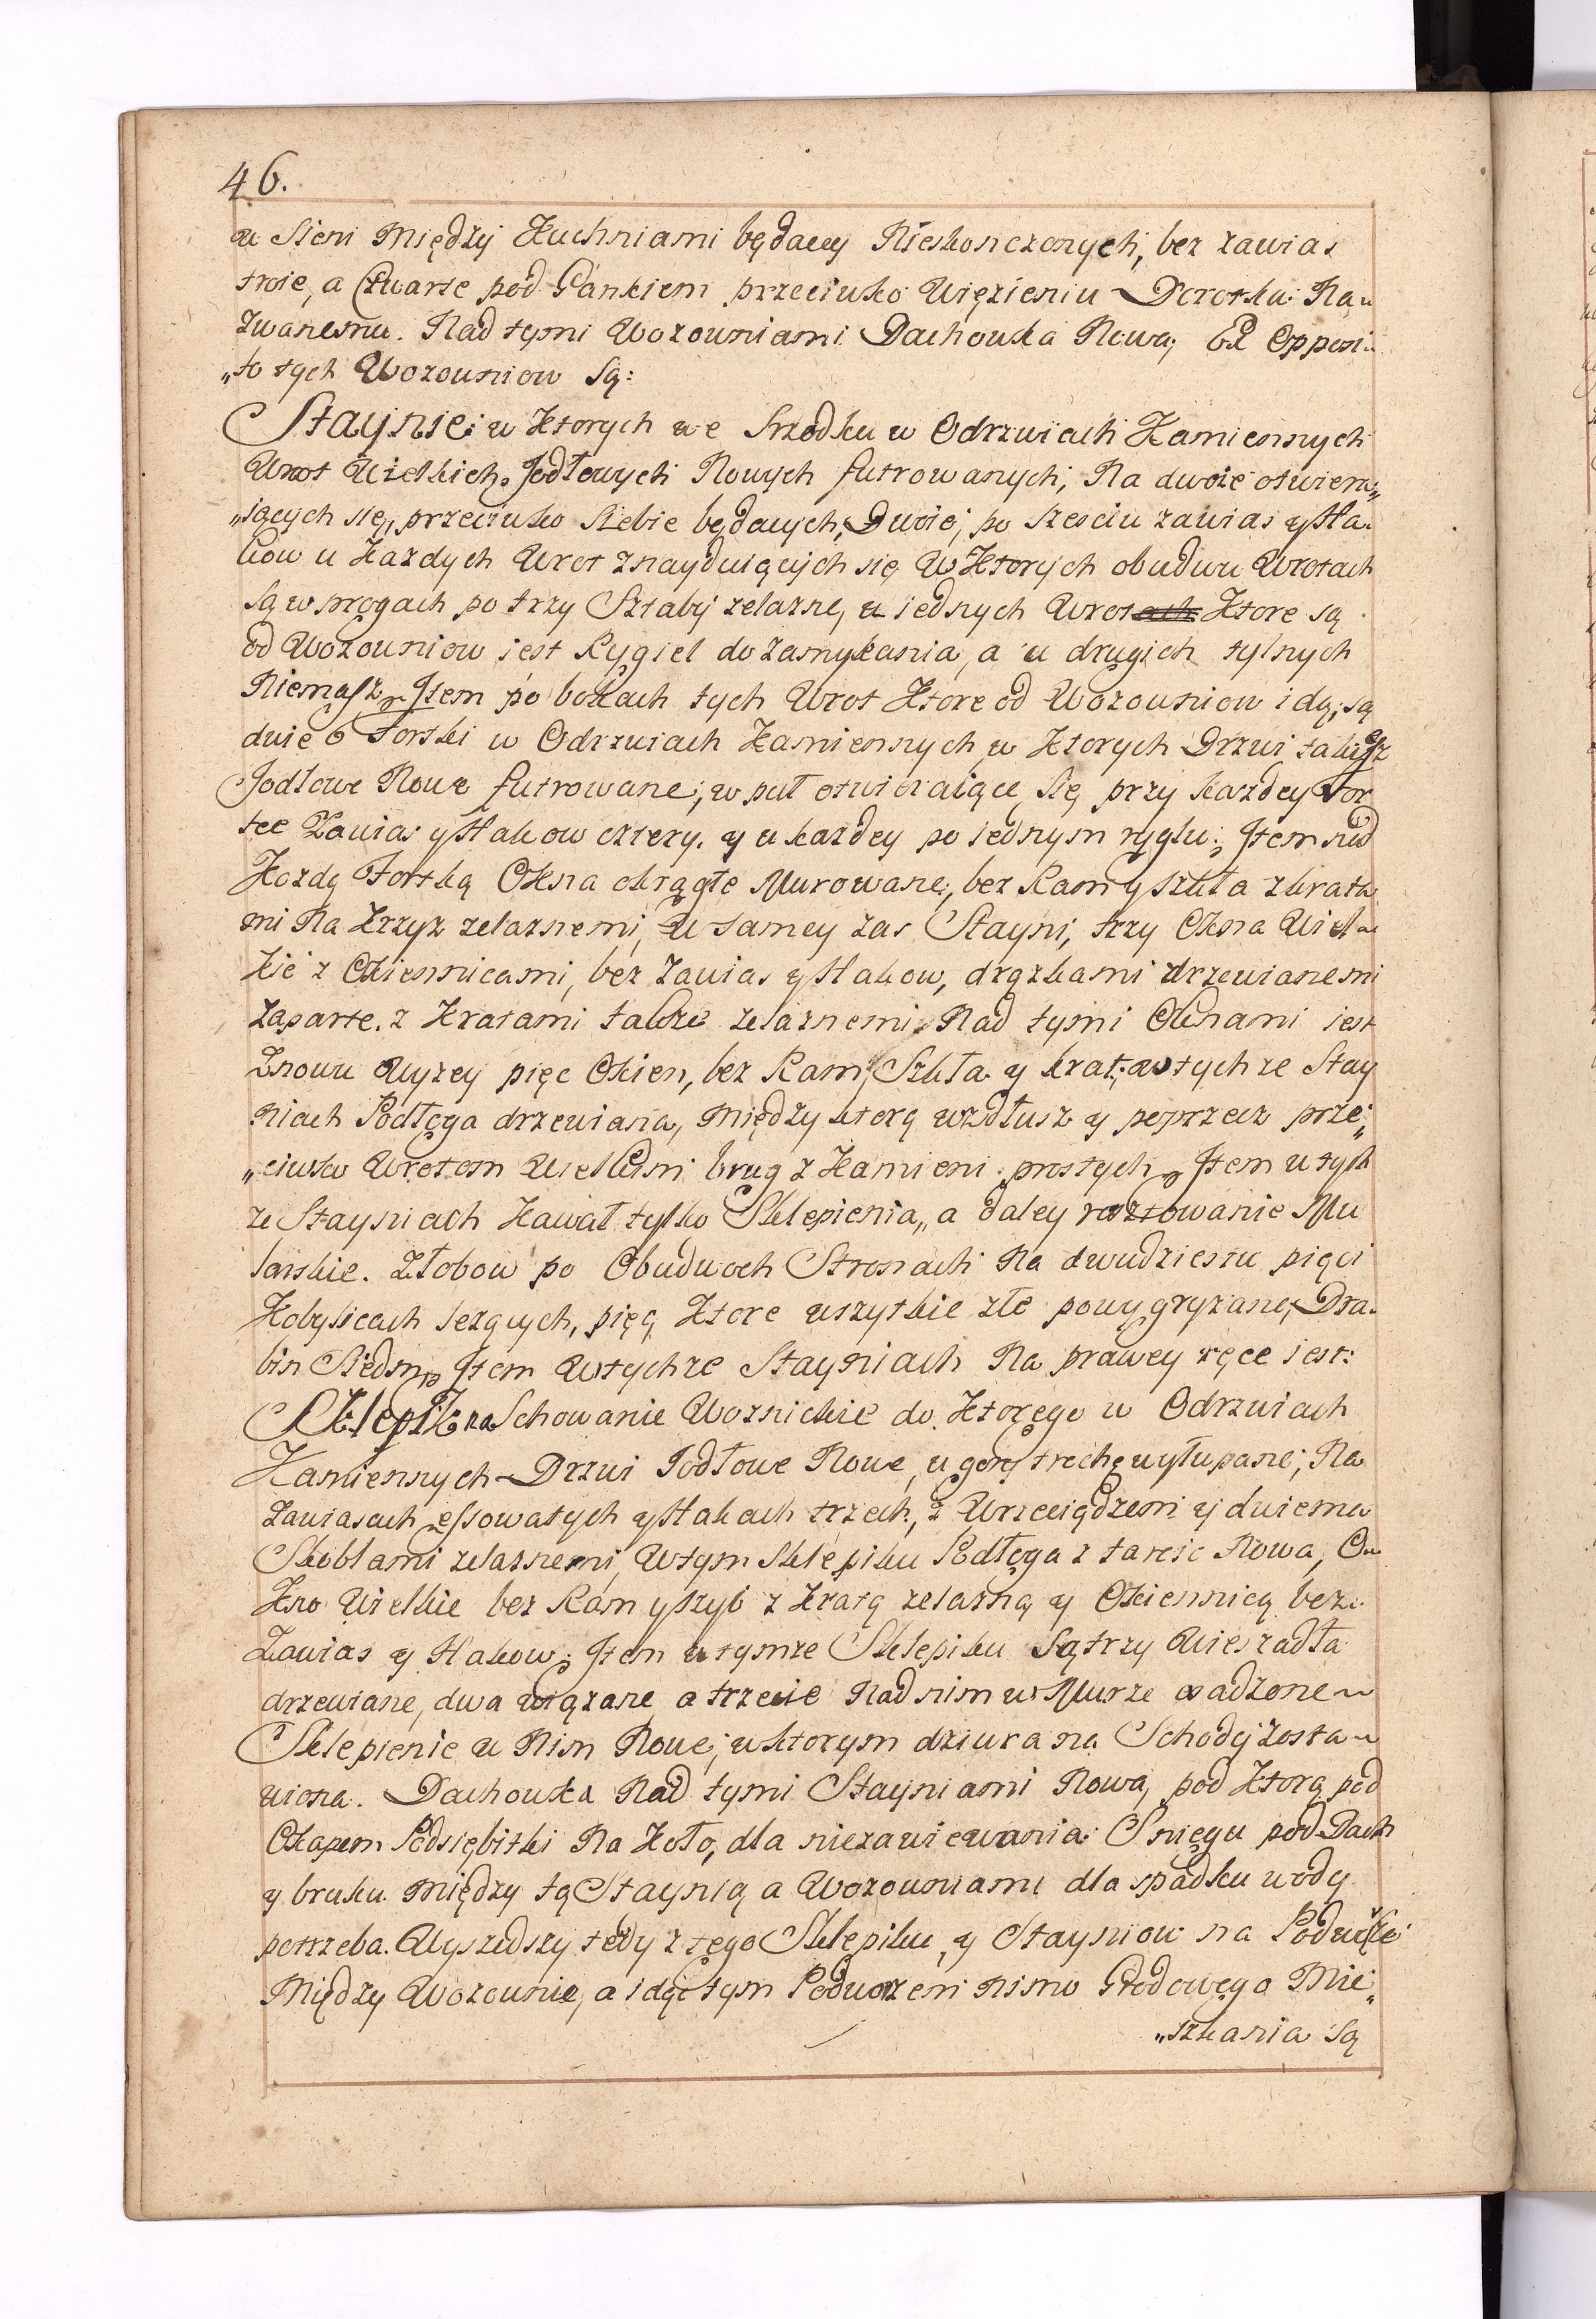 46.
w Sieni Między Kuchniami będącey Nieskonczonych, bez zawias
troie, a Czwarte pod Gankiem przeciwko Więzieniu Dorotka Na„
zwanemu. Nad tymi Wozowniami Dachowka Nowa, Ex Opposi„
„to tych Wozowniow są:
Staynie w Ktorych we Srzodku w Odrzwiach Kamiennych
Wrot Wielkich Jodłowych Nowych futrowanych, Na dwoie otwiera„
„iących się, przeciwko Siebie będących, Dwoie, po Szesciu zawias y Ha„
kow u Kazdych Wrot znayduiących się W Ktorych obudwu Wrotach
są w progach po trzy Sztaby zelazne, u iednych Wrotach Ktore są
od Wozowniow jest Rygiel do zamykania, a u drugich tylnych
Niemasz, Item po bokach tych Wrot Ktore od Wozowniow idą, są
dwie Fortki w Odrzwiach Kamiennych, w Ktorych Drzwi takisz
Jodłowe Nowe futrowane, w puł otwieraiące Się, przy kazdey For
tce Zawias y Hakow cztery. y u kazdey po iednym ryglu; Item nad
Kozdą Fortką Okna okrągłe Murowane, bez Ram y szkła z krata
mi Na Krzyz zelaznemi, W samey zas Stayni, trzy Okna Wiel„
Kie z Okiennicami, bez Zawias y Hakow, drązkami drzewianemi
Zaparte. z Kratami takze zelaznemi, Nad tymi Oknami jest
Znowu Wyzey pięc Okien, bez Ram, Szkła y krat, w tychze Stay
niach Podłoga drzewiana, Między ktorą wzdłusz y poprzecz prze„
„ciwko Wrotom Wielkim brug z Kamieni prostych, Item w tych
ze Stayniach Kawał tylko Sklepienia, a daley rosztowanie Mu
larskie. Złobow po Obudwoch Stronach Na dwudziestu pięci
Kobylicach lezących, pięc, Ktore wszytkie złe powygryzane, Dra„
bin Siedm, Item W tychze Stayniach Na prawey ręce iest:
Sklepik na Schowanie Woznickie do Ktorego w Odrzwiach
Kamiennych Drzwi Jodłowe Nowe, u gory trochę wyłupane, Na
Zawiasach essowatych y Hakach trzech, z Wrzeciądzem y dwiema
Skoblami zelaznemi, W tym Sklepiku Podłoga z tarcic Nowa, O„
Kno Wielkie bez Ram y szyb z Kratą zelazną y Okiennicą bez
Zawias y Hakow, Item w tymze Sklepiku Są trzy Wieszadła
drzewiane, dwa wiązane a trzecie Nad nim w Murze wsadzone„
Sklepienie w Nim Nowe, w ktorym dziura na Schody zosta„
wiona. Dachowka Nad tymi Stayniami Nowa, pod Ktorą pod
Okapem Podsiębitki Na Koło, dla niezawiewania Sniegu pod Dach
y bruku Między tą Staynią a Wozowniami dla spadku wody
potrzeba. Wyszedszy tedy z tego Sklepiku, y Stayniow na Podwurze
Między Wozownie, a idąc tym Podworzem Nimo Grodowego Mie„
„szkania są